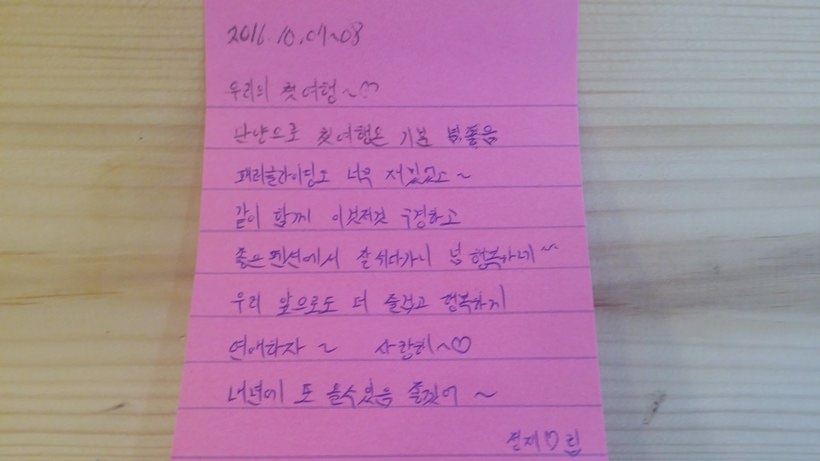 2016. 10. 07~08
우리의 첫여행~♡
단양으로 첫여행은 기분 넘 좋음
패러글라이딩도 너무 재밌었고~
같이 함께 이것저것 구경하고
좋은 펜션에서 잘 쉬다가니 넘 행복하네~
우리 앞으로도 더 즐겁고 행복하게
연애하자 ~ 사랑해~♡
내년에 또 올수있음 좋겠어 ~